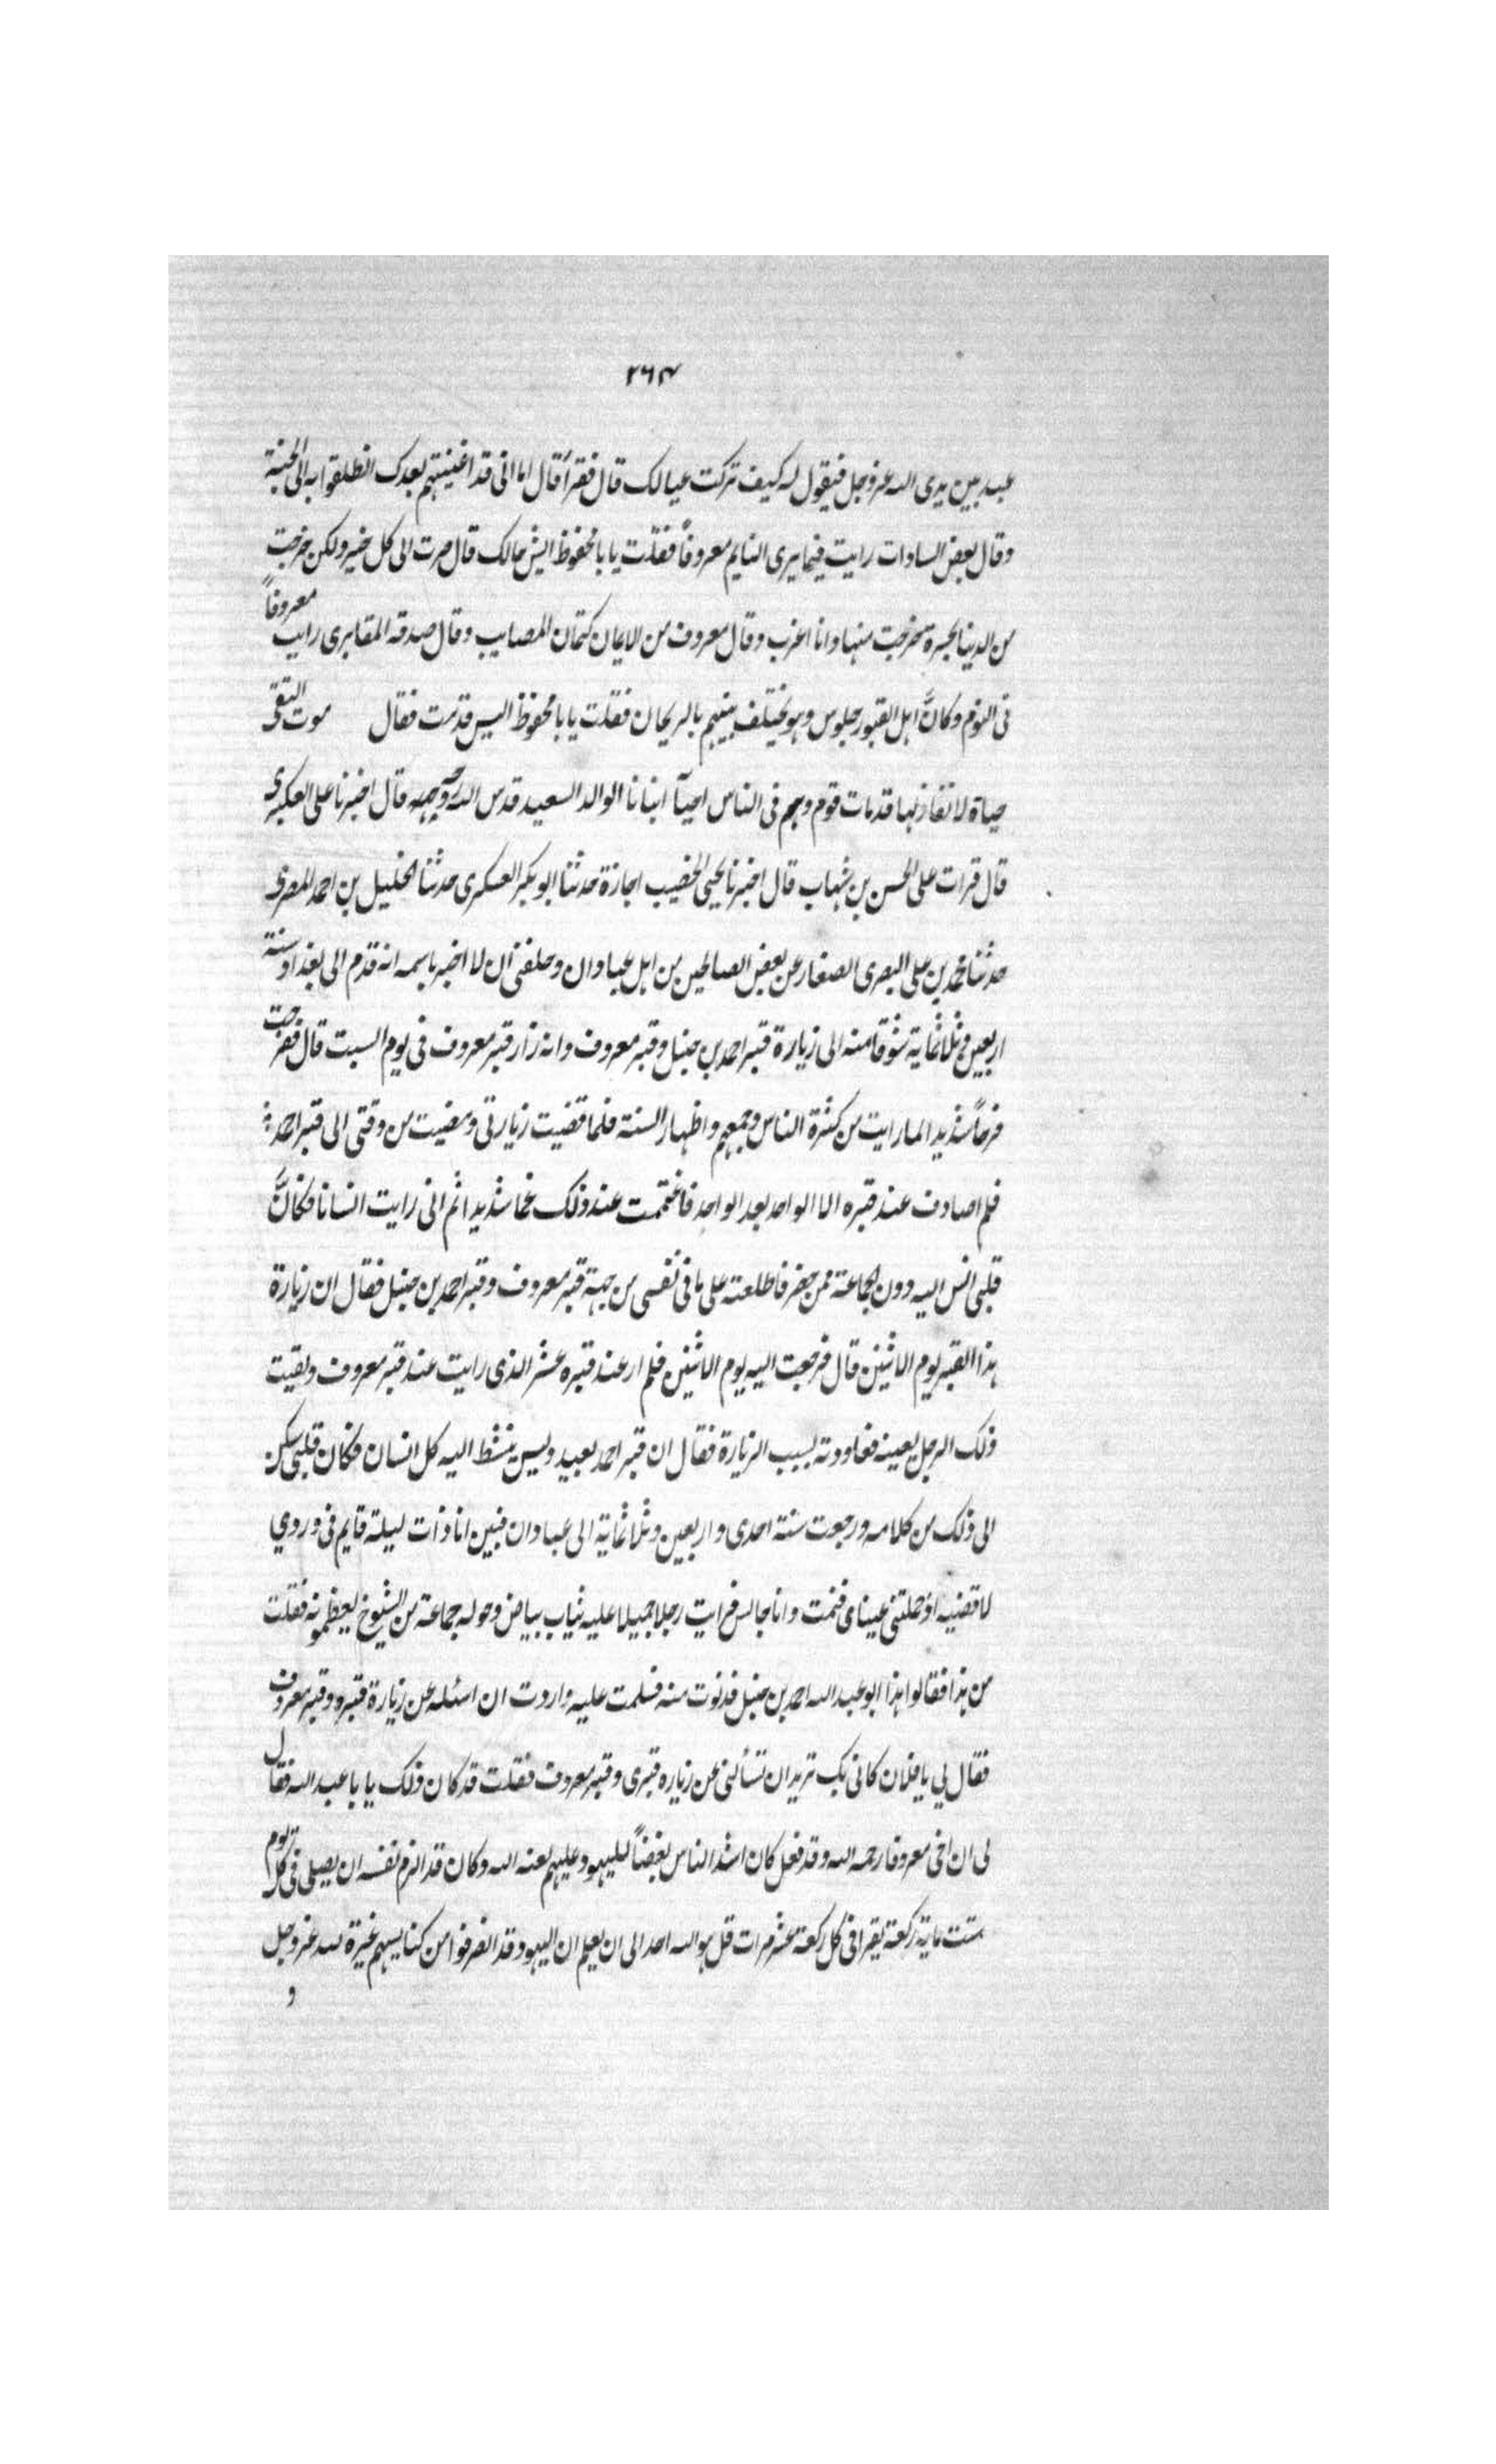 ٢٦٣
عبد بين يدى الله عز وجل فيقول له كيف تركت عيالك قال فقرأ قال اما انى قد اغنيتهم بعدك انطلقوا به الى الجنة
وقال بعض السادات رايت فيما يرى النايم معروفاً فقلت يابا محفوظ ايش حالك قال صرت الى كل خير ولكن خرجت
من الدنيا بحسرة خرجت منها وانا اعزب وقال معروف من الايمان كتمان المصايب وقال صدقه المقابرى رايت معروفاً
فى النوم وكانَّ اهل القبور جلوس وهو يختلف بينهم بالريحان فقلت يابا محفوظ اليس قدمت فقال موت التقى
حياة لا نفاد لها قدمات قوم وهم فى الناس احيآ انبانا الوالد السعيد قدس الله روحه قال اخبرنا على العكبرى
قال قرات على الحسن بن شهاب قال اخبرنا يحيى الخصيب اجازة حدثنا ابو بكر العسكرى حدثنا الخليل بن احمد المصرى
حدثنا محمد بن على البصرى الصفار عن بعض الصالحين من اهل عبادان وحلفنى ان لا اخبر باسمه انه قدم الى بغداد سنة
اربعين وثلاثماية شوقا منه الى زيارة قبر احمد بن حنبل وقبر معروف وانه زار قبر معروف فى يوم السبت قال ففرحت
فرحاً شديدا لما رايت من كثرة الناس وجمعهم واظهار السنة فلما قضيت زيارتى ومضيت من وقتى الى قبر احمد
فلم اصادف عند قبره الا الواحد بعد الواحد فاغتممت عند ذلك غما شديدا ثم انى رايت انسانا فكانَّ
قلبى انس اليه دون الجماعة ممن حضر فاطلعته على ما فى نفسى من جهة قبر معروف وقبر احمد بن حنبل فقال ان زيارة
هذا القبر يوم الاثنين قال فرجعت اليه يوم الاثنين فلم ار عند قبره عشر الذى رايت عند قبر معروف وبقيت
ذلك الرجل بعينه فعاودته بسبب الزيارة فقال ان قبر احمد بعيد وليس ينشط اليه كل انسان فكان قلبى سكن
الى ذلك من كلامه ورجعت سنة احدى واربعين وثلاثماية الى عبادان فبين انا ذات ليلة قايم فى وردي
لاقضيه اذ حملتنى عيناى فنمت وانا جالس فرايت رجلا جميلا عليه ثياب بياض وحوله جماعة من الشيوخ يعظمونه فقلت
من هذا فقالوا هذا ابو عبد الله احمد بن حنبل فدنوت منه فسلمت عليه واردت ان اسئله عن زيارة قبره وقبر معروف
فقال لي يا فلان كانى بك تريد ان تسألنى عن زيارة قبرى وقبر معروف فقلت قد كان ذلك يابا عبد الله فقال
لى ان اخى معروفا رحمه الله وقد فعل كان اشد الناس بغضاً لليهود عليهم لعنه الله وكان قد الزم نفسه ان يصلى فى كل يوم
ستت ماية ركعة يقرا فى كل ركعة عشر مرات قل هو الله احد الى ان يعلم ان اليهود قد انصرفوا من كنايسهم غيرة لله عز وجل
و